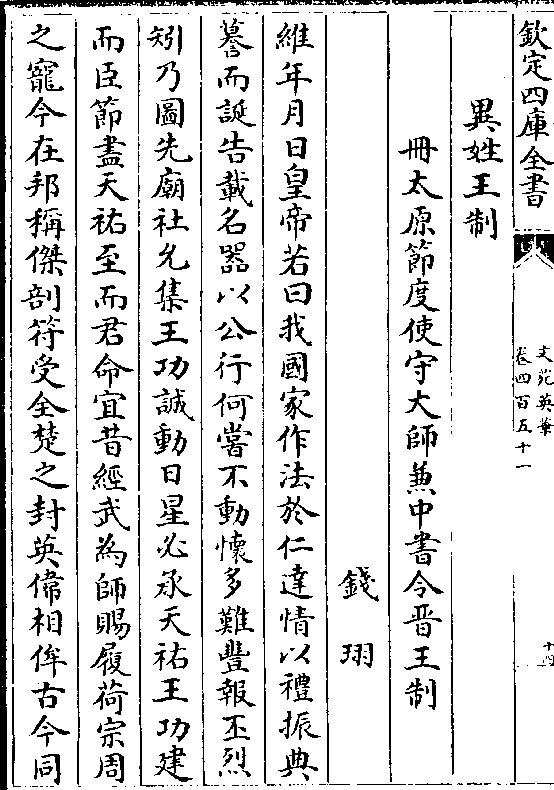 欽定四庫全書
文苑英華
卷四百五十一
十四
異姓王制
冊太原節度使守大師兼中書令晋王制
錢珝
維年月日皇帝若曰我國家作法於仁達情以禮振典
謩而誕告載名器以公行何嘗不動懷多難豐報丕烈
矧乃圖先廟社允集王功誠動日星必承天祐王功建
而臣節盡天祐至而君命宜昔經武為師賜履荷宗周
之寵今在邦稱傑剖符受全楚之封英偉相侔古今同